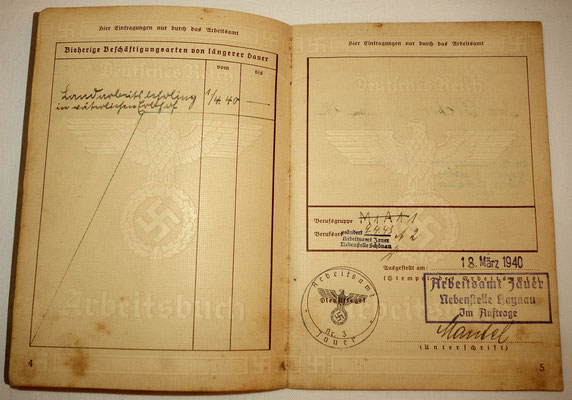 Hier Eintragungen nur durch das Arbeitsamt
Bisherige Beschäftigungsarten von längerer Dauer
vom
bis
Landarbeitslehrling
in väterlichen Erbhof
1/4 40
Deutsches Reich
Arbeitsbuch
4
Hier Eintragungen nur durch das Arbeitsamt
Deutsches Reich
Berufsgruppe
Berufsart
geändert
Arbeitsamt Jauer
Nebenstelle Schönau
Ausgestellt am:
18. März 1940
(Stempel des Arbeitsamtes)
Arbeitsamt Jauer
Nebenstelle Haynau
Im Auftrage
Mantel
(Unterschrift)
Arbeitsamt
Dienstsiegel
Nr. 3
Jauer
Arbeitsbuch
5